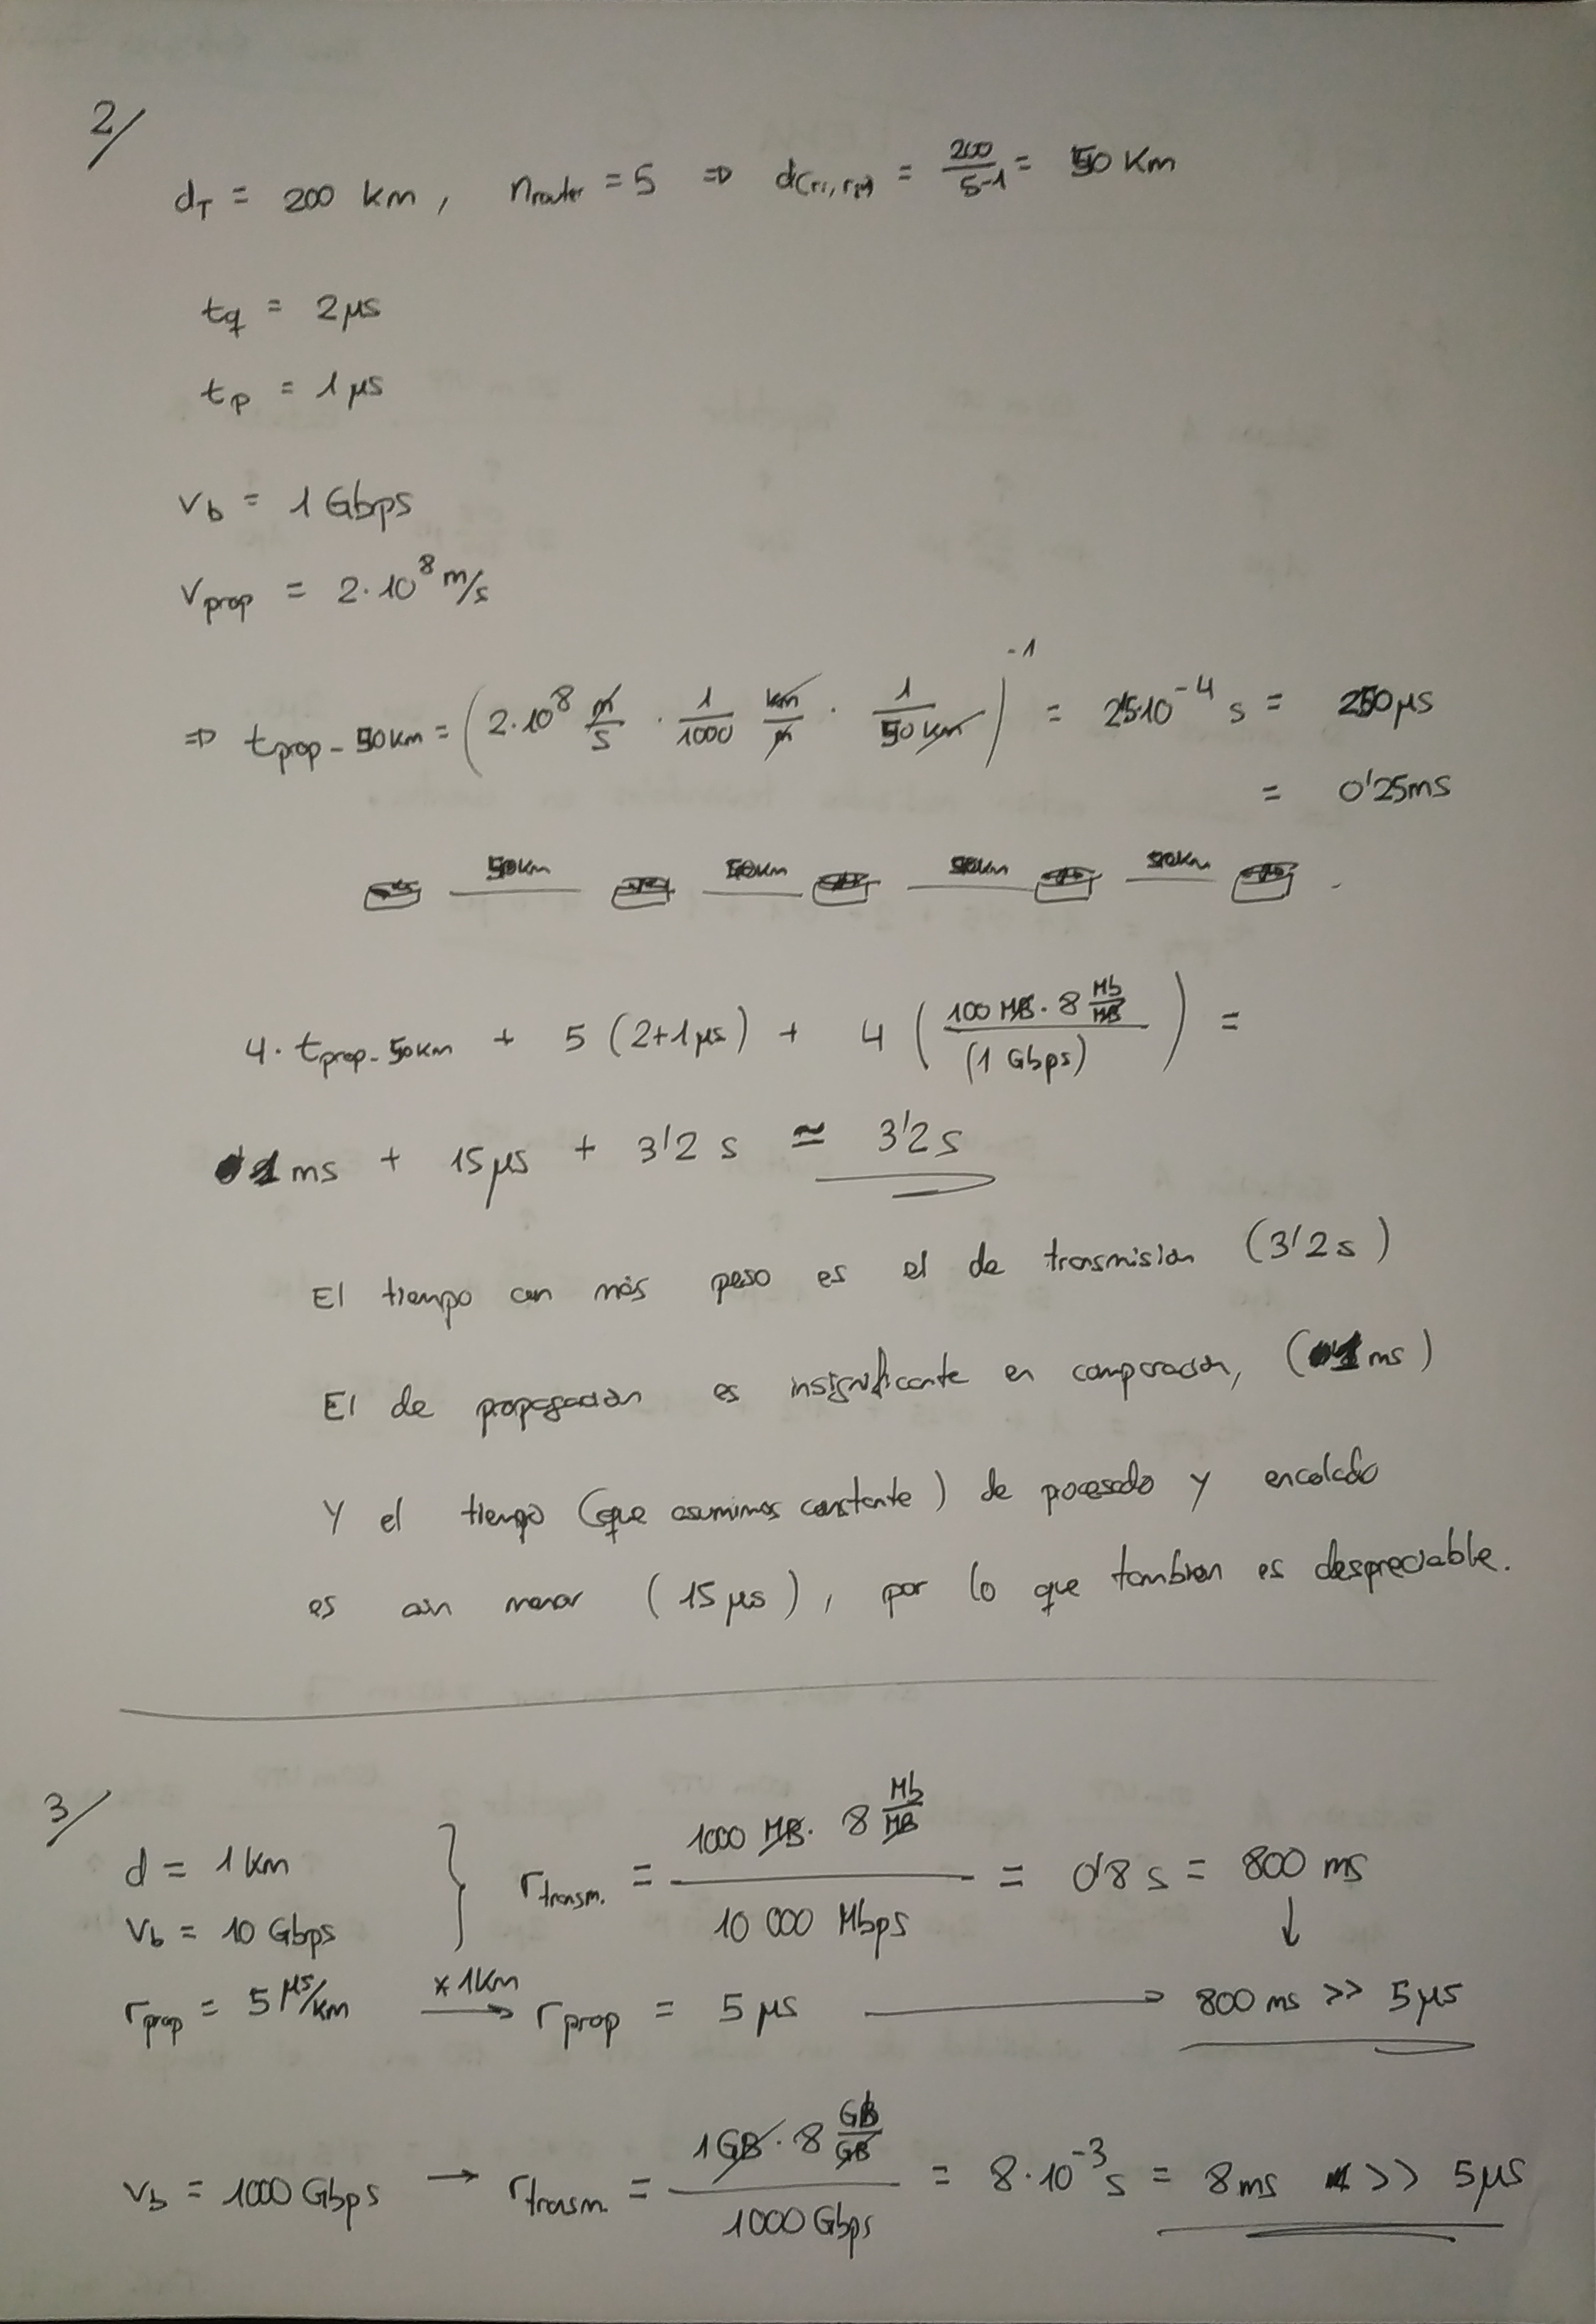 2/
d_T = 200 km, n_router = 5 ⇒ d(r_i, r_j) = 200/(5-1) = 50 Km
t_q = 2 μs
t_p = 1 μs
v_b = 1 Gbps
v_prop = 2·10^8 m/s
⇒ t_prop-50km = (2·10^8 m/s · 1/1000 km/m · 1/(50 km))^-1 = 2'5·10^-4 s = 250 μs
= 0'25ms
50km 50km 50km 50km
4· t_prop-50km + 5 (2+1μs) + 4 ( (100 MB · 8 Mb/MB) / (1 Gbps) ) =
1 ms + 15 μs + 3'2 s ≃ 3'2 s
El tiempo con más peso es el de transmisión (3'2 s)
El de propagación es insignificante en comparación, (1 ms)
Y el tiempo (que asumimos constante) de procesado y encolado
es aún menor (15 μs), por lo que también es despreciable.
3/
d = 1 km
V_b = 10 Gbps
} r_transm. = (1000 MB · 8 Mb/MB) / (10 000 Mbps) = 0'8 s = 800 ms
↓
r_prop = 5 μs/km —* 1Km→ r_prop = 5 μs → 800 ms >> 5 μs
V_b = 1000 Gbps → r_transm. = (1 GB · 8 Gb/GB) / (1000 Gbps) = 8·10^-3 s = 8 ms >> 5 μs